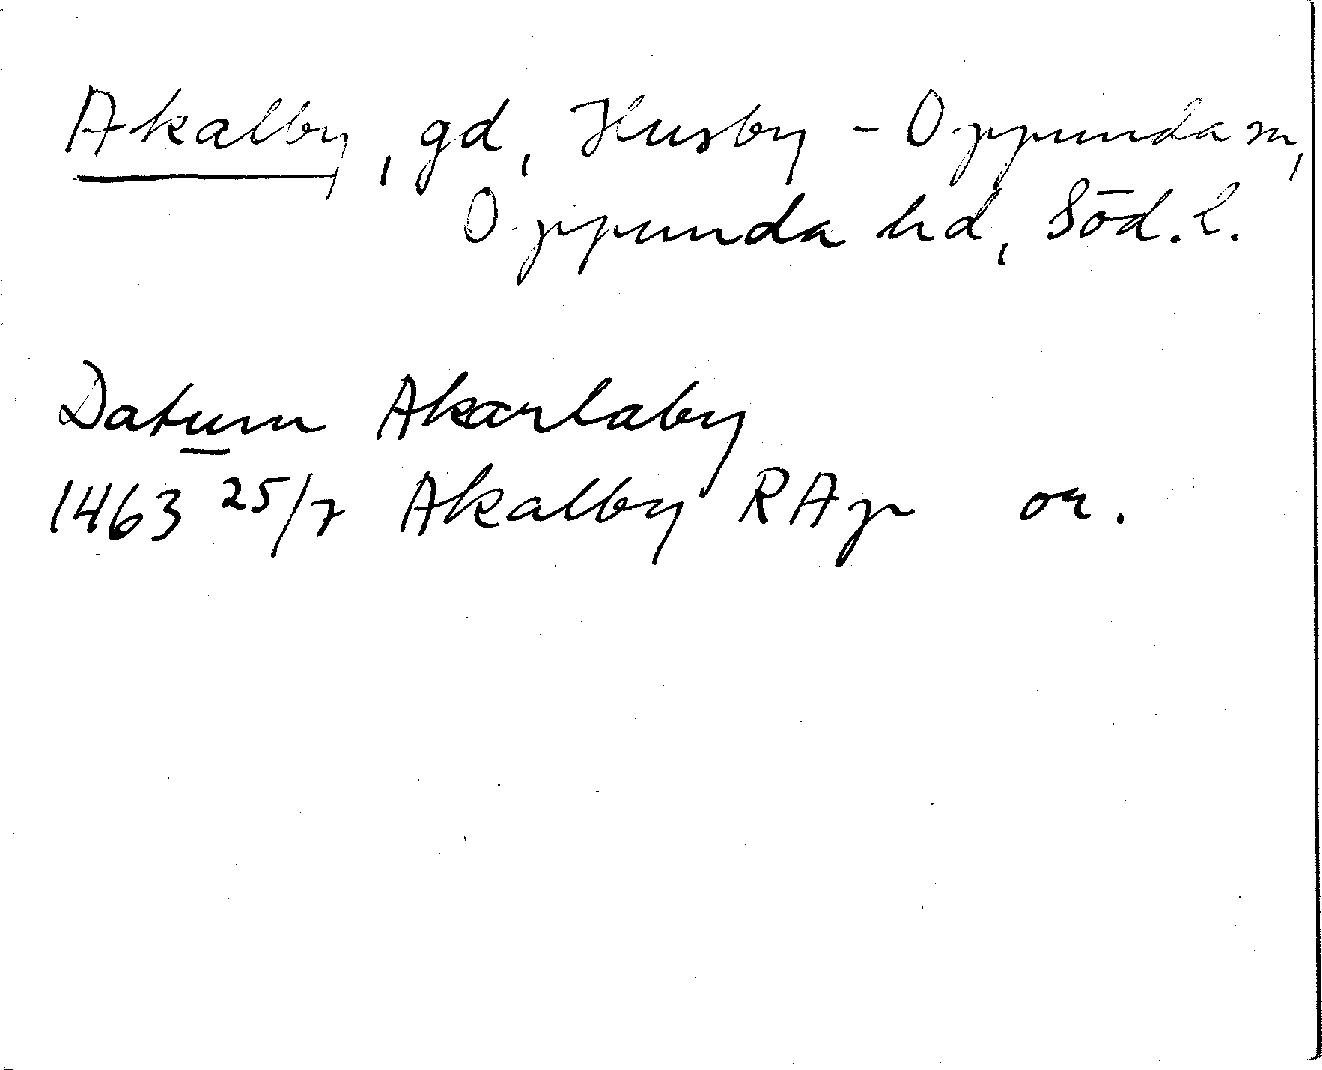 Akalby, gd, Husby-Oppunda sn,
Oppunda hd, Söd. l.
Datum Akarlaby
1463 25/7 Akalby RAp or.